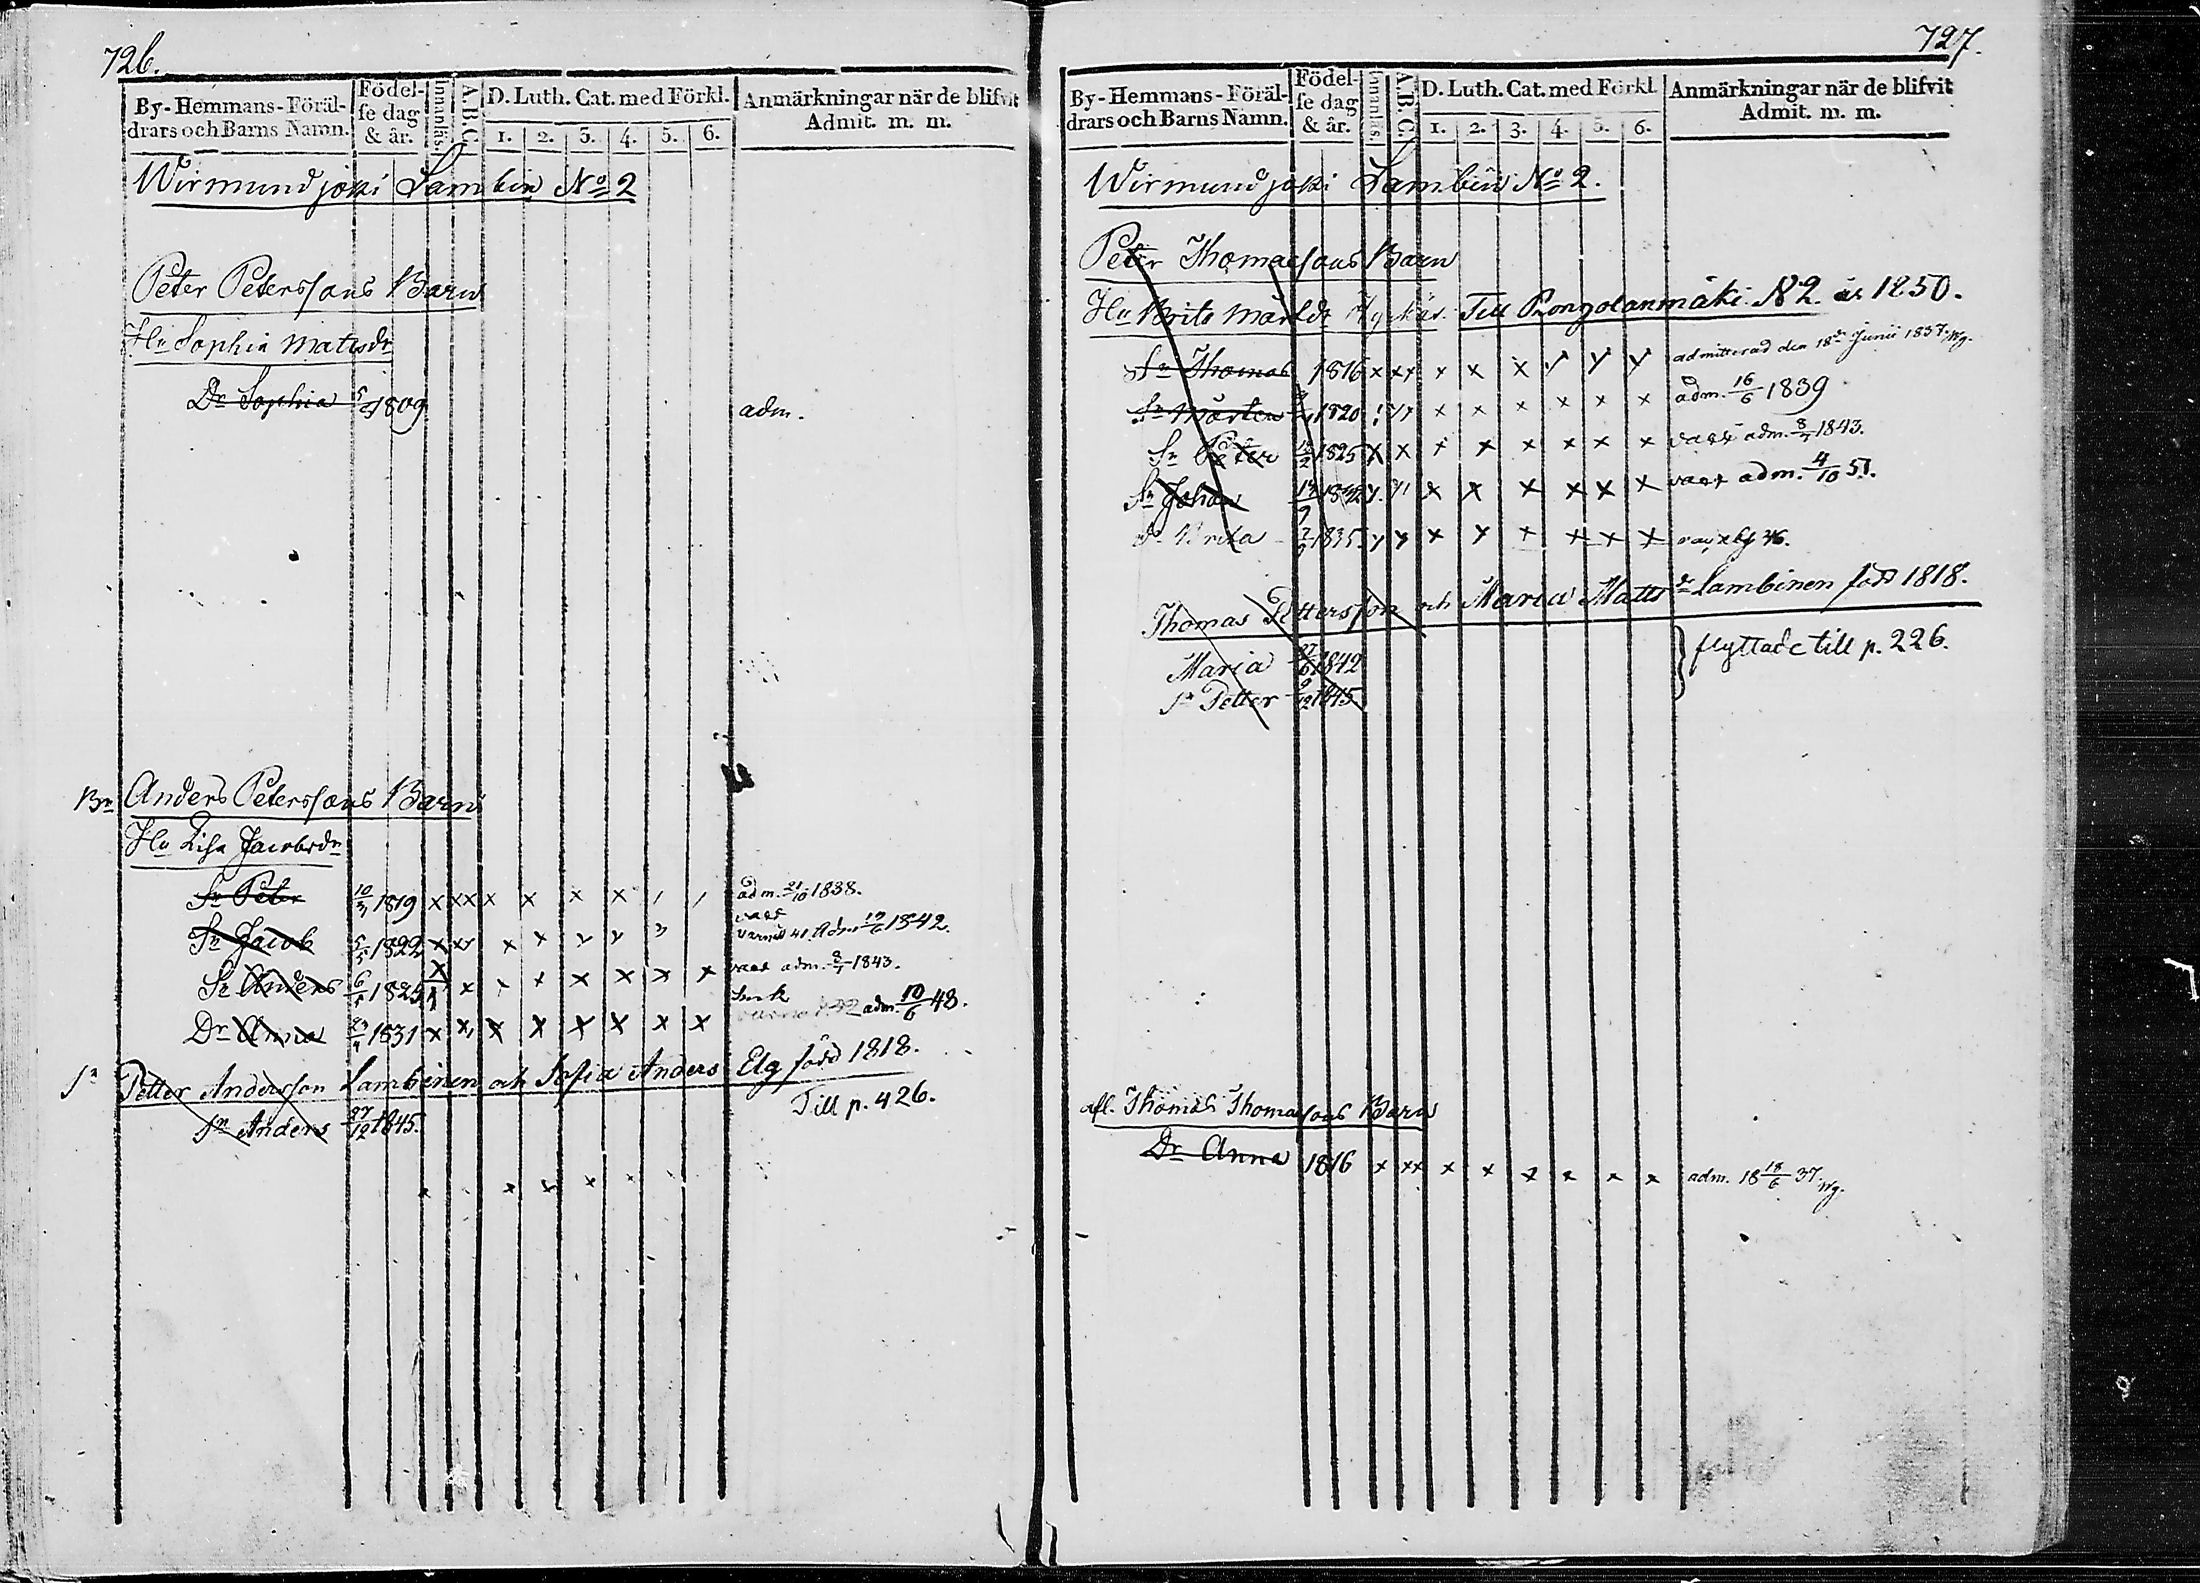 726.
By-Hemmans-Föräl-
drars och Barns Namn.
Födel-
se dag
& år.
Innanläs.
A.B.C.
D. Luth. Cat. med Förkl.
1. 2. 3. 4. 5. 6.
Anmärkningar när de blifvit
Admit. m. m.
Wirmundjoki Lambin No 2
Peter Peterssons Barn
Hu Sophia Matsdr
Dr Sophia 1809 adm.
Br Anders Peterssons Barn
Hu Lisa Jacobsdr
Sn Peter 10/3 1819 x xx x x x x adm. 21/10 1838.
Sn Jacob 5/5 1822 x 19/6 1842.
Sn Anders 6/5 1825 x x x x x x adm. 8/7 1843.
Dr Anna 1831 x x x x x x x x adm. 10/6 48.
Sn Petter Andersson Lambinen och Sofia Anders Elg född 1818.
Sn Anders 27/12 1845. Till p. 426.
727.
By-Hemmans-Föräl-
drars och Barns Namn.
Födel-
se dag
& år.
Innanläs.
A.B.C.
D. Luth. Cat. med Förkl
1. 2. 3. 4. 5. 6.
Anmärkningar när de blifvit
Admit. m. m.
Wirmundjoki Lambin No 2.
Peter Thomassons Barn
Hu Brita Mårtdr Till Pongolanmäki N 2 år 1850.
Sn Thomas 1816 x xx x x x x x x admitterad den 18de Junii 1837
Sn Mårten 1820 x x x x x x adm. 16/6 1839
Sn Peter 1825 x x x x x x x x adm. 8/7 1843.
Sn Johan x x x x x x adm. 4/10 51.
Dr Brita 1835 x x x x x x x x
Thomas Pettersson och Maria Matts dr Lambinen född 1818.
Maria 27/6 1842
Sn Petter 9/12 1845
flyttade till p. 226.
afl. Thomas Thomassons Barn
Dr Anna 1816 x xx x x x x x x adm. 18 18/6 37.